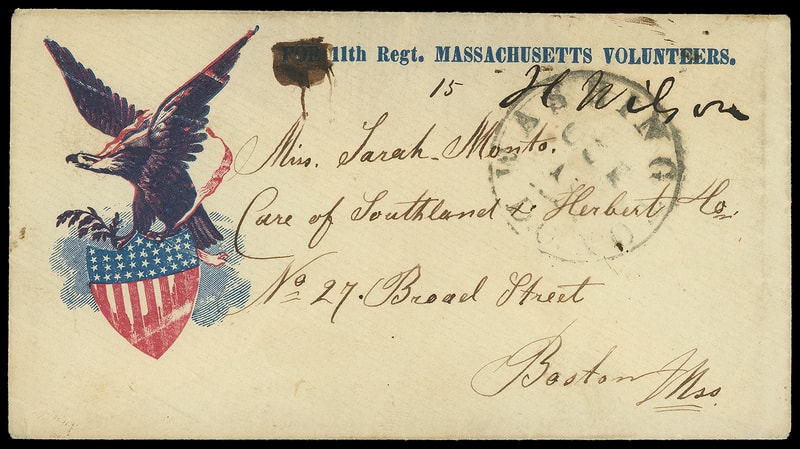 FOR 11th Regt. MASSACHUSETTS VOLUNTEERS.
15 H Wilson
WASHING
Miss. Sarah Monto.
Care of Southland & Herbert Ho:
No 27. Broad Street
Boston Mss.